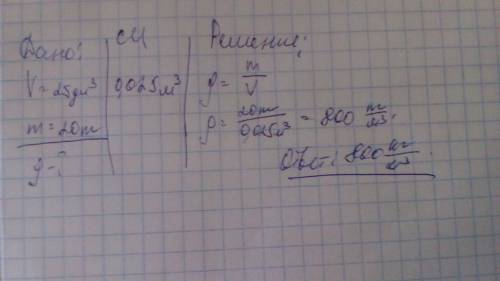 Дано:
V = 25 дм³
m = 20 т
ρ - ?
СИ
0,025 м³
Решение:
ρ = m/V
ρ = 20 т/0,025 м³ = 800 т/м³.
Ответ: 800 кг/м³.